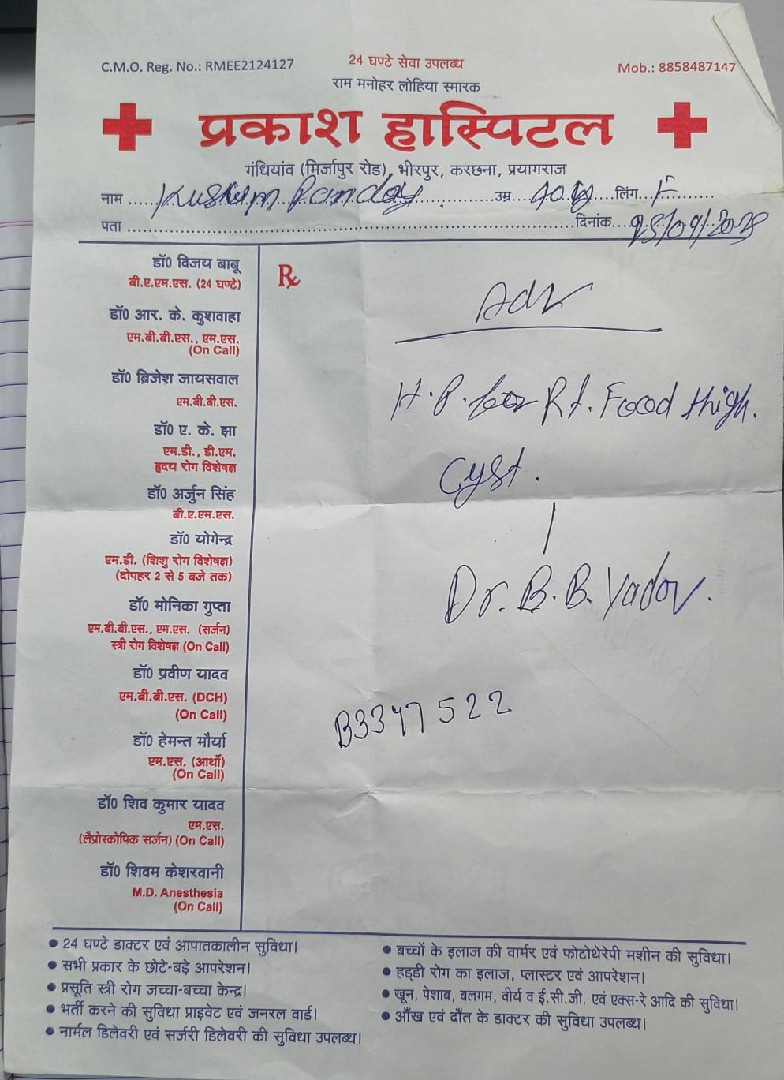 C.M.O. Reg. No.: RMEE2124127
24 घण्टे सेवा उपलब्ध
Mob.: 8858487147
राम मनोहर लोहिया स्मारक
प्रकाश हास्पिटल
गंधियांव (मिर्जापुर रोड), भीरपुर, करछना, प्रयागराज
नाम Kushum Panday उम्र 40 लिंग F
पता दिनांक
डॉ0 विजय बाबू
बी.ए.एम.एस. (24 घण्टे)
डॉ0 आर. के. कुशवाहा
एम.बी.बी.एस., एम.एस.
(On Call)
डॉ0 ब्रिजेश जायसवाल
एम.बी.बी.एस.
डॉ0 ए. के. झा
एम.डी., डी.एम.
हृदय रोग विशेषज्ञ
डॉ0 अर्जुन सिंह
बी.ए.एम.एस.
डॉ0 योगेन्द्र
एम.डी. (शिशु रोग विशेषज्ञ)
(दोपहर 2 से 5 बजे तक)
डॉ0 मोनिका गुप्ता
एम.बी.बी.एस., एम.एस. (सर्जन)
स्त्री रोग विशेषज्ञ (On Call)
डॉ0 प्रवीण यादव
एम.बी.बी.एस. (DCH)
(On Call)
डॉ0 हेमन्त मौर्या
एम.एस. (आर्थो)
(On Call)
डॉ0 शिव कुमार यादव
एम.एस.
(लैप्रोस्कोपिक सर्जन) (On Call)
डॉ0 शिवम केशरवानी
M.D. Anesthesia
(On Call)
Rx
Adv
H.P. for Rt. Food thigh.
Cyst.
Dr. B.B. Yadav.
B3347522
• 24 घण्टे डाक्टर एवं आपातकालीन सुविधा।
• सभी प्रकार के छोटे-बड़े आपरेशन।
• प्रसूति स्त्री रोग जच्चा-बच्चा केन्द्र।
• भर्ती करने की सुविधा प्राइवेट एवं जनरल वार्ड।
• नार्मल डिलेवरी एवं सर्जरी डिलेवरी की सुविधा उपलब्ध।
• बच्चों के इलाज की वार्मर एवं फोटोथेरेपी मशीन की सुविधा।
• हड्डी रोग का इलाज, प्लास्टर एवं आपरेशन।
• खून, पेशाब, बलगम, वीर्य व ई.सी.जी. एवं एक्स-रे आदि की सुविधा।
• आँख एवं दाँत के डाक्टर की सुविधा उपलब्ध।